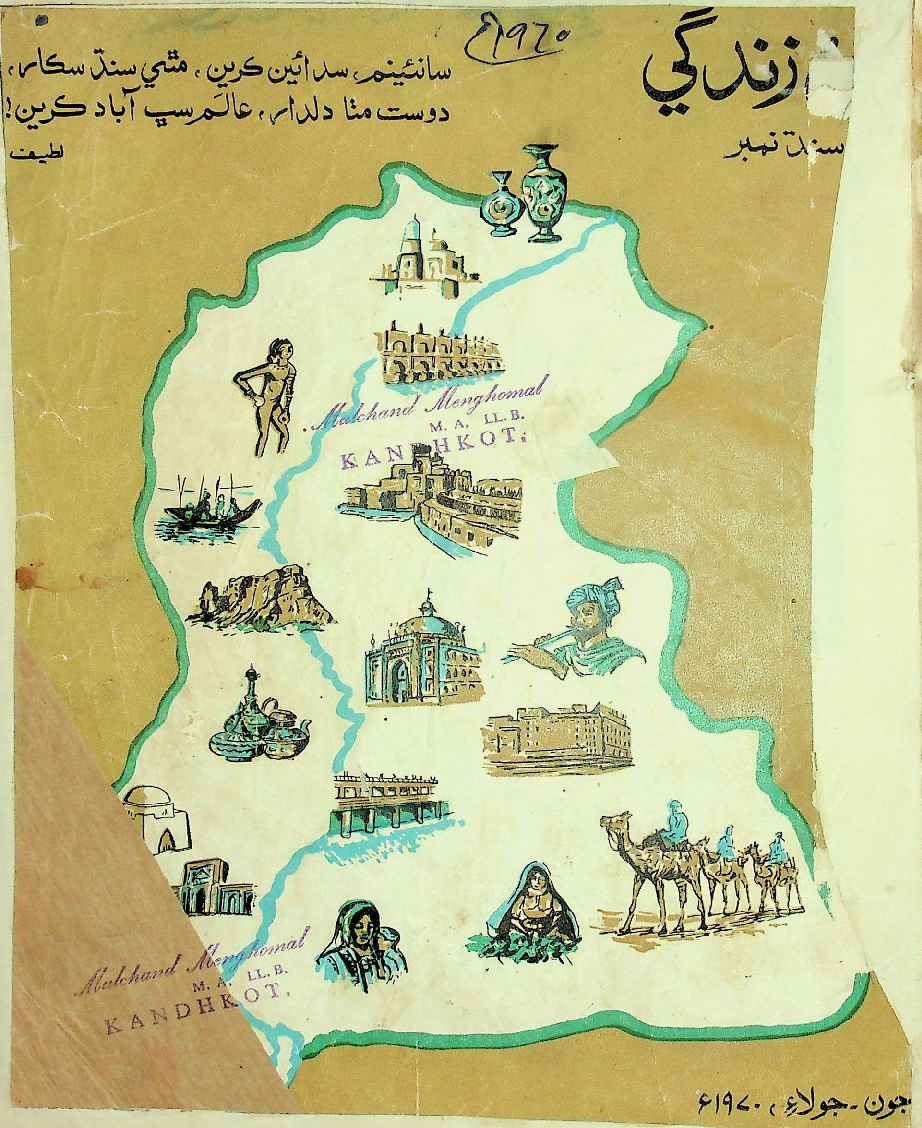 زندگي
سنڌ نمبر
سانئينم، سدائين ڪرين، مٿي سنڌ سڪار،
دوست مٺا دلدار، عالَم سڀ آباد ڪرين!
لطيف
Mulchand Menghomal
M. A. LL. B.
KANDHKOT.
Mulchand Menghomal
M. A. LL. B.
KANDHKOT.
جون - جولاءِ، ۱۹۷۰ع